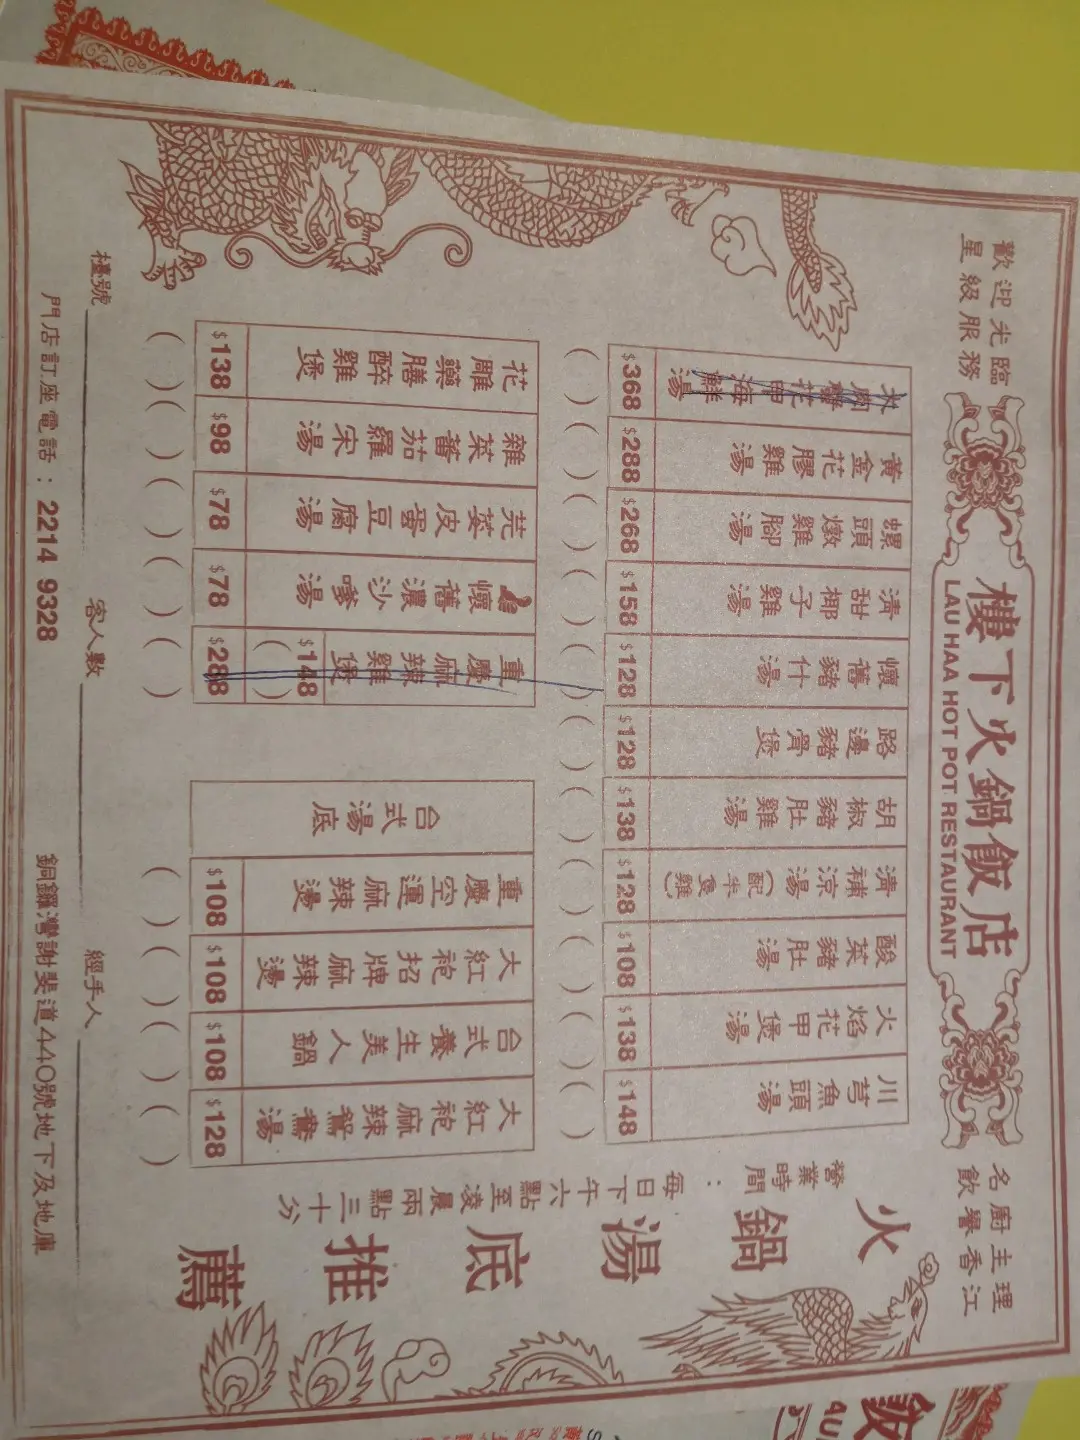 歡迎光臨
星級服務
樓下火鍋飯店
LAU HAA HOT POT RESTAURANT
名廚主理
飲譽香江
火鍋湯底推薦
營業時間：每日下午六點至凌晨兩點三十分
川芎魚頭湯 $148 ( )
火焰花甲煲湯 $138 ( )
酸菜豬肚湯 $108 ( )
清補涼湯(配半隻雞) $128 ( )
胡椒豬肚雞湯 $138 ( )
路邊豬骨煲 $128 ( )
懷舊豬什湯 $128 ( )
清甜椰子雞湯 $158 ( )
螺頭燉雞腳湯 $268 ( )
黃金花膠雞湯 $288 ( )
大閘蟹花甲海鮮湯 $368 ( )
大紅袍麻辣鴛鴦湯 $128 ( )
台式養生美人鍋 $108 ( )
大紅袍招牌麻辣燙 $108 ( )
重慶空運麻辣燙 $108 ( )
台式湯底
重慶麻辣雞煲 $148 ( ) ( ) $288 ( )
懷舊濃沙嗲湯 $78 ( )
芫荽皮蛋豆腐湯 $78 ( )
雜菜蕃茄羅宋湯 $98 ( )
花雕藥膳醉雞煲 $138 ( )
檯號
客人數
經手人
門店訂座電話：2214 9328
銅鑼灣謝斐道440號地下及地庫